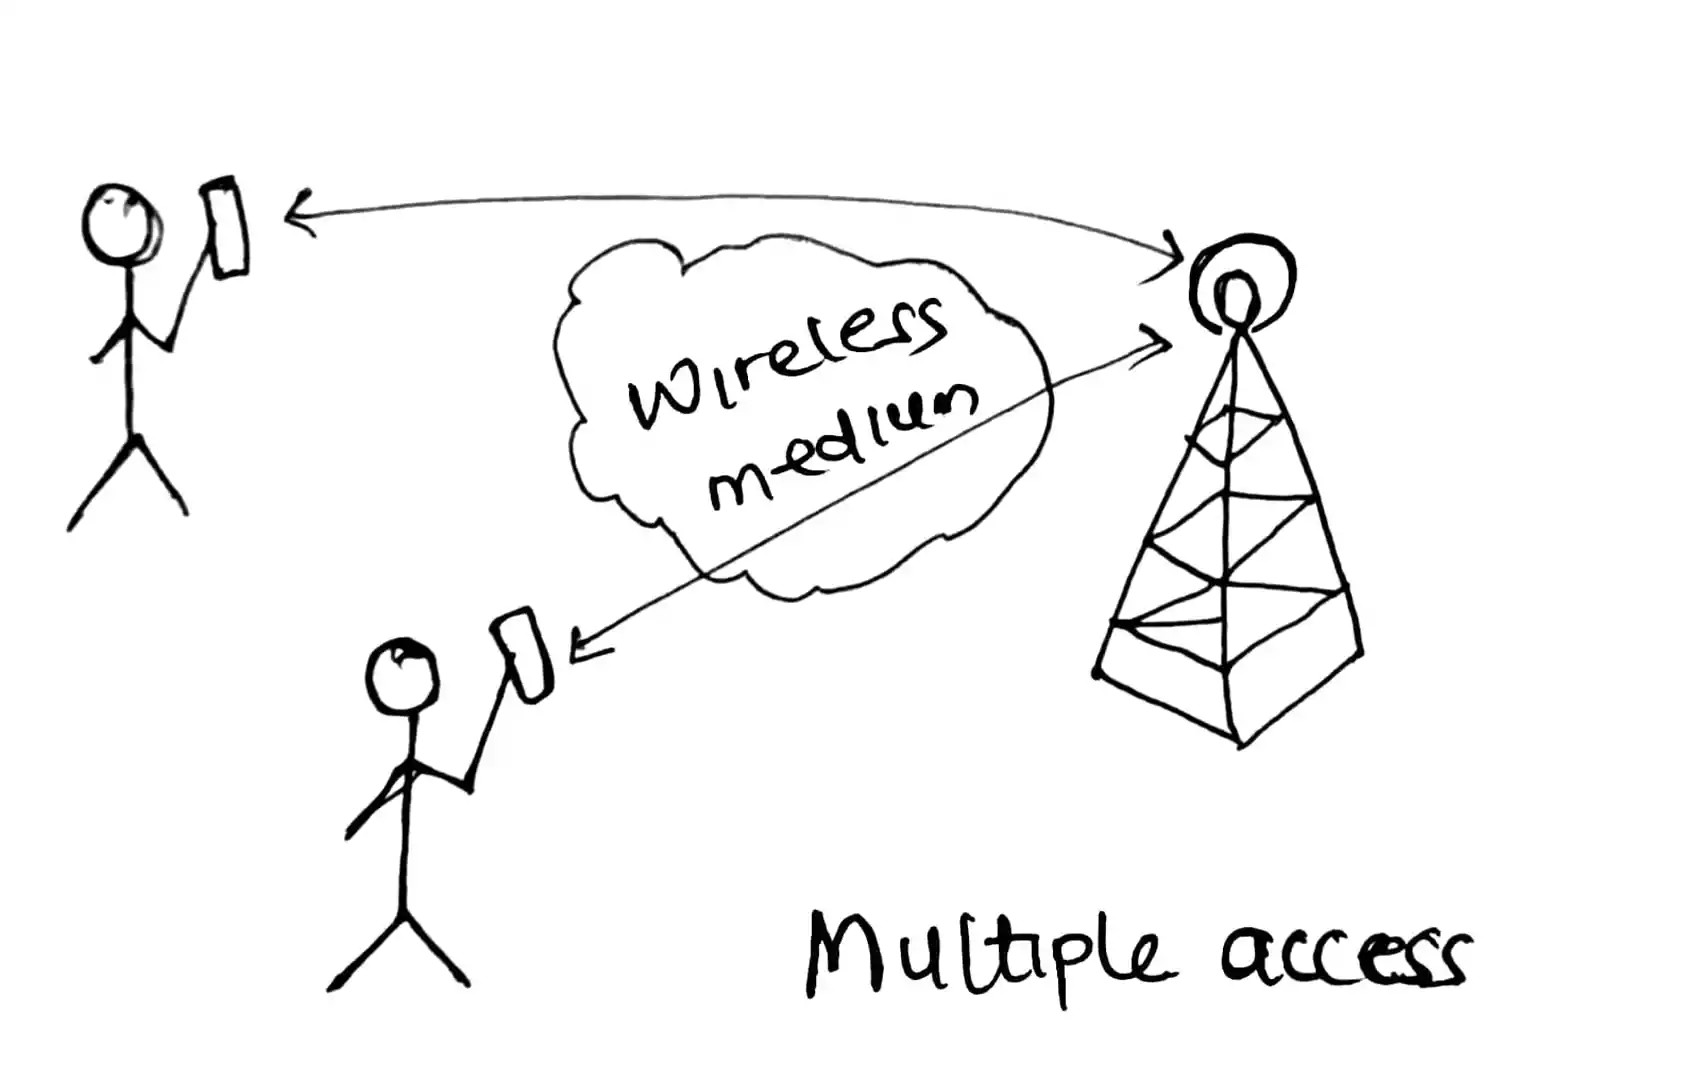 Wireless
medium
Multiple access